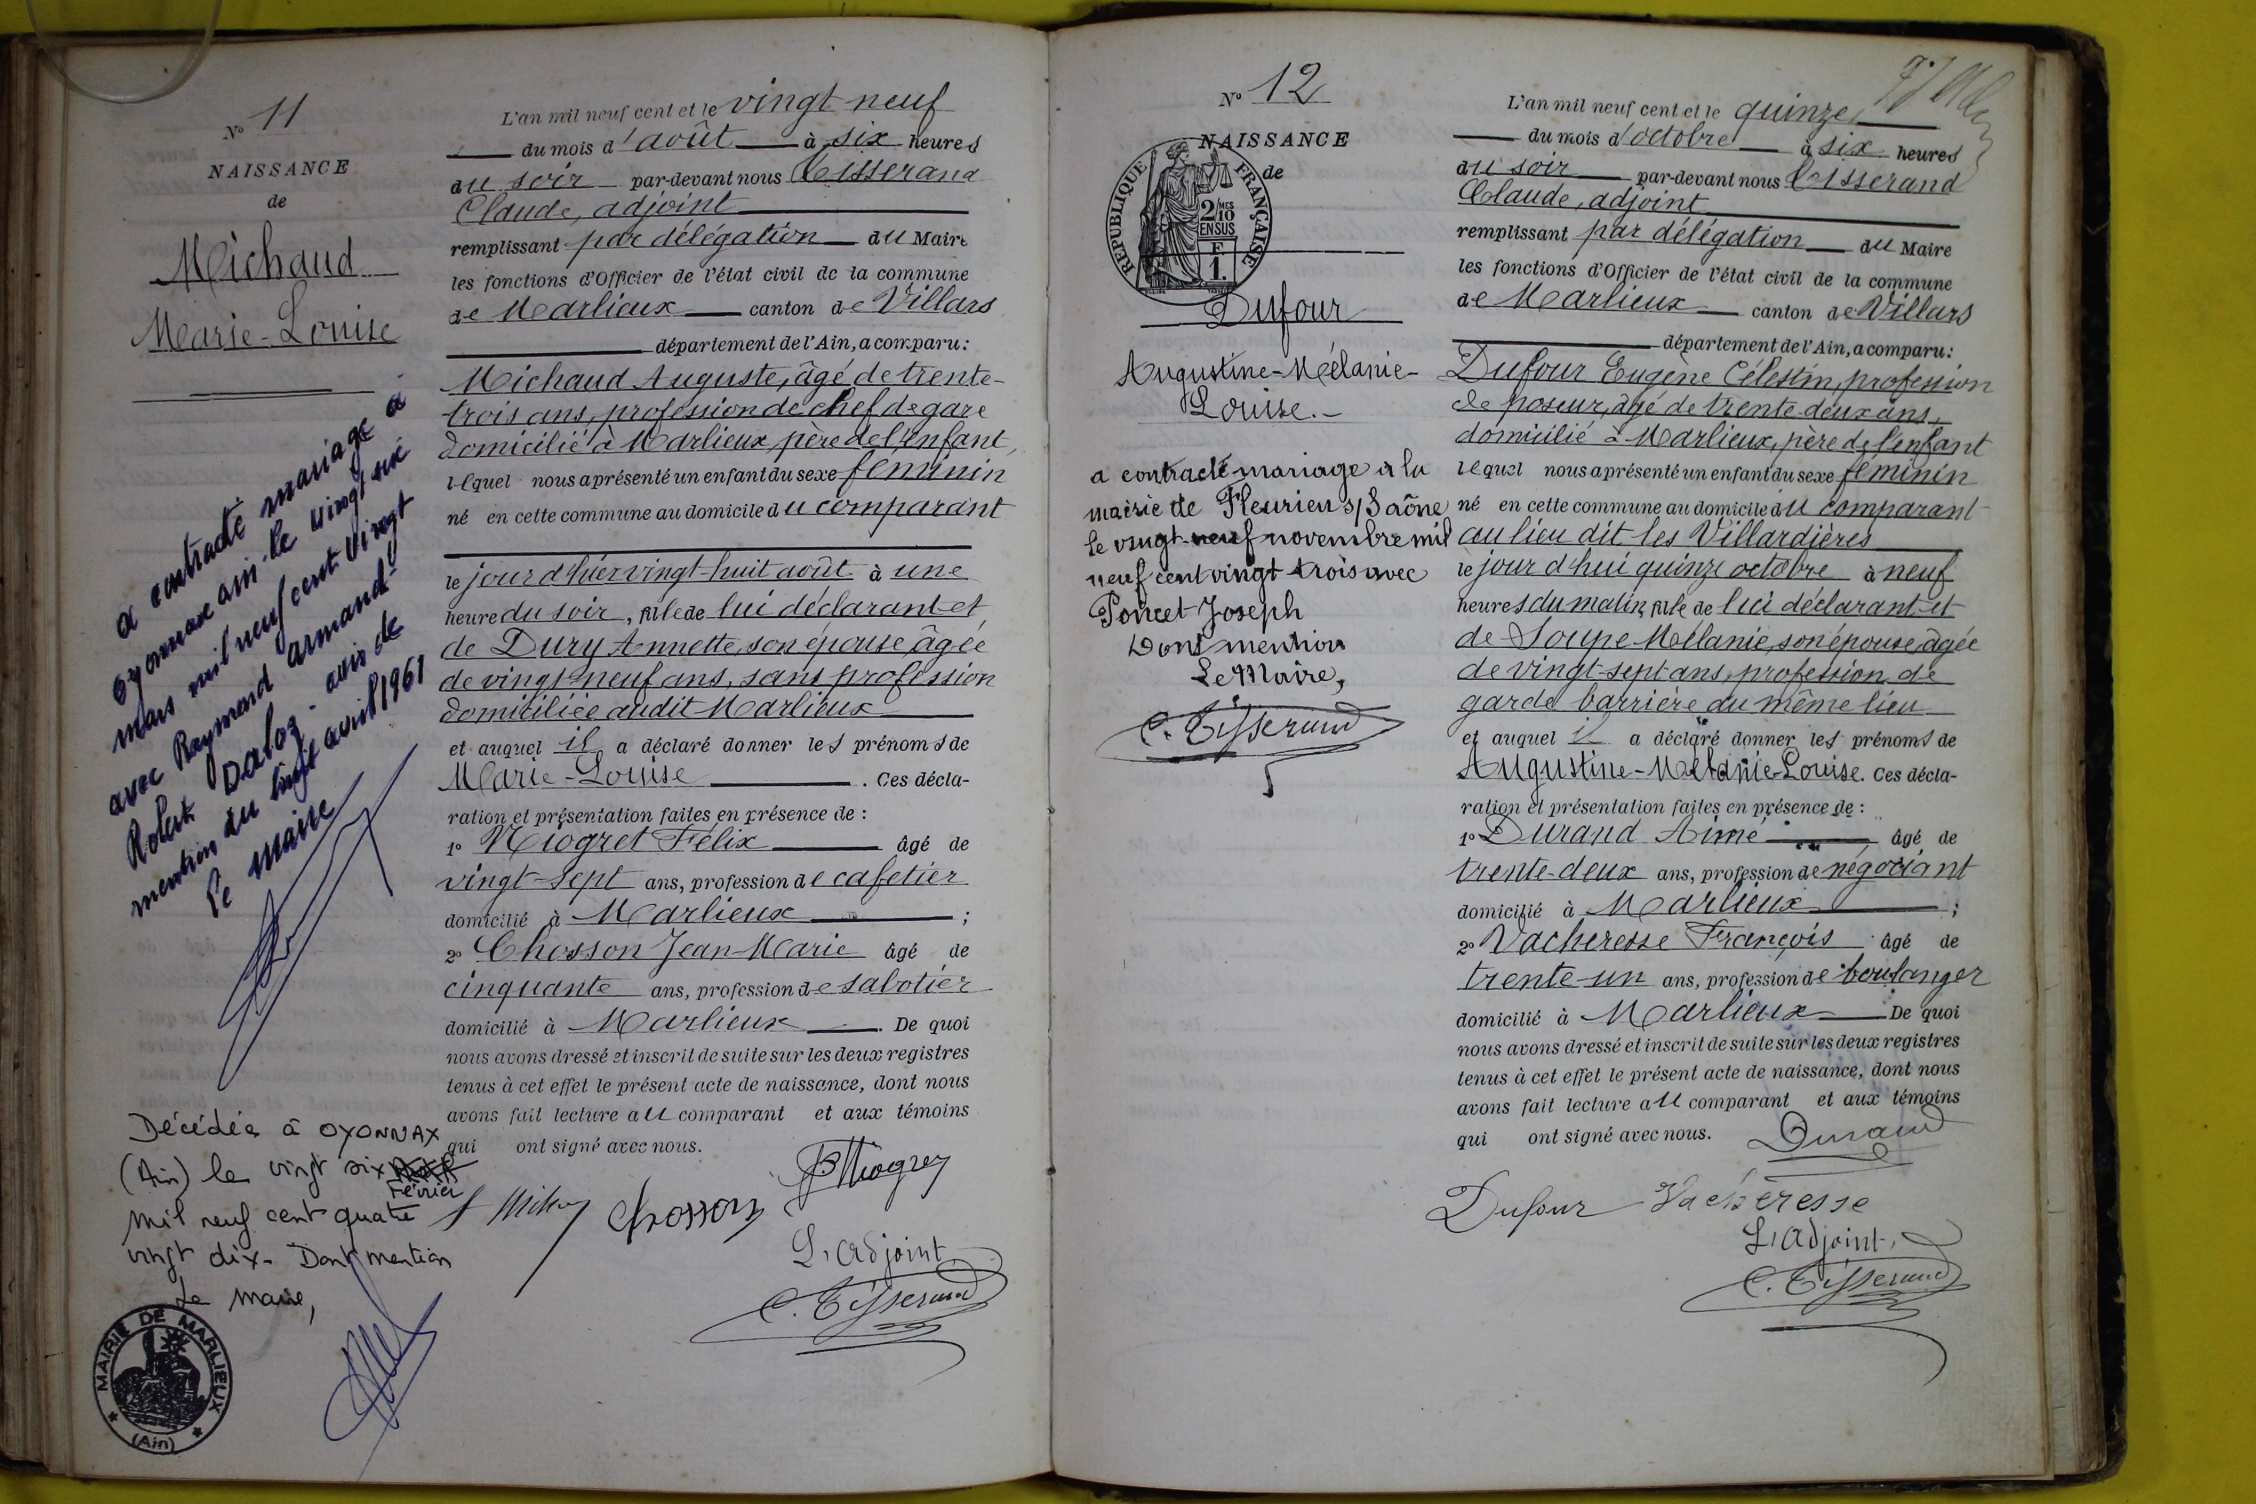 N° 11
NAISSANCE
de
Michaud
Marie-Louise
a contracté mariage à
Oyonnax ain le vingt six
mars mil neuf cent vingt
avec Raymond Armand
Robert Daloz - avis de
mention du vingt avril 1961
Le Maire
Décédée à OYONNAX
(Ain) le vingt six
Février
mil neuf cent quatre
vingt dix - Dont mention
Le Maire,
MAIRIE DE MARLIEUX
(Ain)
L'an mil neuf cent et le vingt neuf
du mois d'août à six heures
du soir par-devant nous Tisserand
Claude, adjoint
remplissant par délégation du Maire
les fonctions d'Officier de l'état civil de la commune
de Marlieux canton de Villars
département de l'Ain, a comparu:
Michaud Auguste, âgé de trente-
trois ans, profession de chef de gare
domicilié à Marlieux, père de l'enfant,
lequel nous a présenté un enfant du sexe féminin
né en cette commune au domicile du comparant
le jour d'hier vingt-huit août à une
heure du soir, fille de lui déclarant et
de Dury Annette, son épouse âgée
de vingt-neuf ans, sans profession
domiciliée audit Marlieux
et auquel il a déclaré donner les prénoms de
Marie-Louise. Ces décla-
ration et présentation faites en présence de :
1° Niogret Félix âgé de
vingt-sept ans, profession de cafetier
domicilié à Marlieux ;
2° Chosson Jean-Marie âgé de
cinquante ans, profession de sabotier
domicilié à Marlieux. De quoi
nous avons dressé et inscrit de suite sur les deux registres
tenus à cet effet le présent acte de naissance, dont nous
avons fait lecture au comparant et aux témoins
qui ont signé avec nous.
Chosson
L'adjoint
C. Tisserand
N° 12
NAISSANCE
de
RÉPUBLIQUE FRANÇAISE
2/10 MES
EN SUS
F.
1.
Dufour
Augustine-Mélanie-
Louise.-
a contracté mariage à la
mairie de Fleurieu s/Saône
le vingt-neuf novembre mil
neuf cent vingt trois avec
Poncet Joseph
Dont mention
Le Maire,
C. Tisserand
L'an mil neuf cent et le quinze
du mois d'octobre à six heures
du soir par-devant nous Tisserand
Claude, adjoint
remplissant par délégation du Maire
les fonctions d'Officier de l'état civil de la commune
de Marlieux canton de Villars
département de l'Ain, a comparu:
Dufour Eugène Célestin, profession
de poseur, âgé de trente-deux ans,
domicilié à Marlieux, père de l'enfant
lequel nous a présenté un enfant du sexe féminin
né en cette commune au domicile du comparant
au lieu dit les Villardières
le jour d'hui quinze octobre à neuf
heures du matin, fille de lui déclarant et
de Soupe Mélanie, son épouse, âgée
de vingt-sept ans, profession de
garde barrière du même lieu
et auquel il a déclaré donner les prénoms de
Augustine-Mélanie-Louise. Ces décla-
ration et présentation faites en présence de :
1° Durand Aimé âgé de
trente-deux ans, profession de négociant
domicilié à Marlieux ;
2° Vacheresse François âgé de
trente-un ans, profession de boulanger
domicilié à Marlieux De quoi
nous avons dressé et inscrit de suite sur les deux registres
tenus à cet effet le présent acte de naissance, dont nous
avons fait lecture au comparant et aux témoins
qui ont signé avec nous. Durand
Dufour Vacheresse
L'adjoint,
C. Tisserand